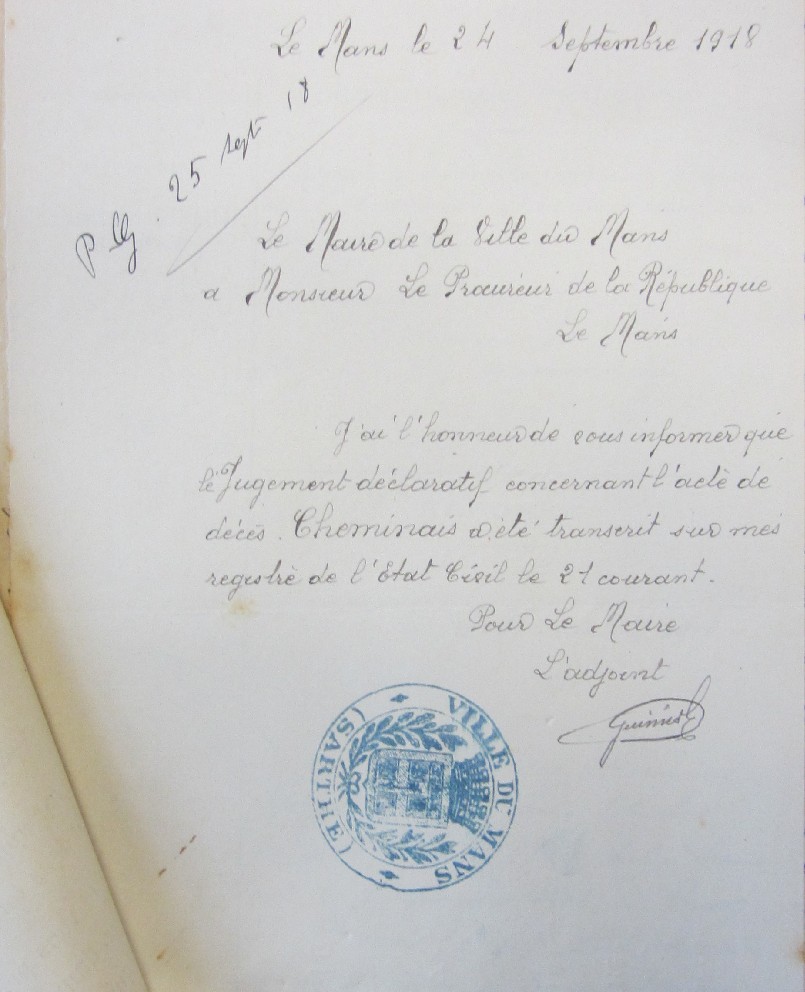 Le Mans le 24 Septembre 1918
25 sept 18
Le Maire de la Ville du Mans
a Monsieur Le Procureur de la République
Le Mans
J'ai l'honneur de vous informer que
le Jugement déclaratif concernant l'acte de
décès. Cheminais a été transcrit sur mes
registre de l'Etat Civil le 21 courant.
Pour Le Maire
L'adjoint
VILLE DU MANS
(SARTHE)